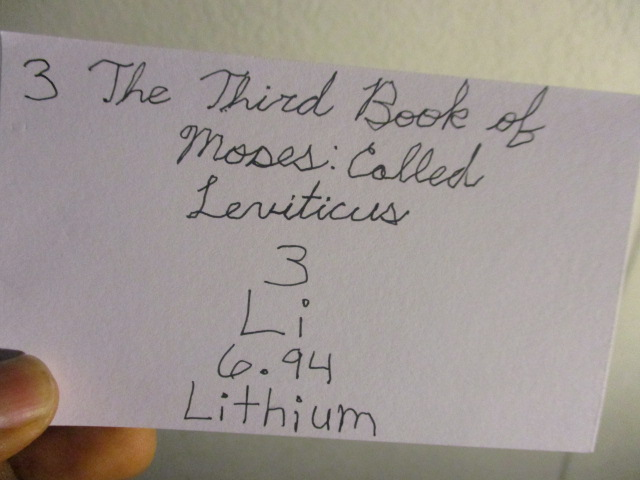 3 The Third Book of
Moses: Called
Leviticus
3
Li
6.94
Lithium